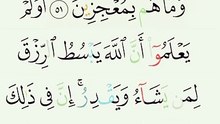 وَمَا هُم بِمُعْجِزِينَ ﴿٥١﴾ أَوَلَمْ
يَعْلَمُوٓا۟ أَنَّ ٱللَّهَ يَبْسُطُ ٱلرِّزْقَ
لِمَن يَشَآءُ وَيَقْدِرُ ۚ إِنَّ فِى ذَٰلِكَ